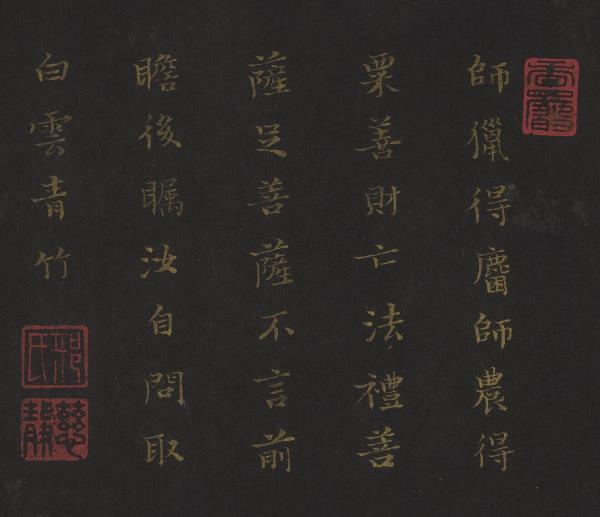 師獵得麕師農得
粟善財亡法禮善
薩足善薩不言前
瞻後矚汝自問取
白雲青竹
邢氏
慈靜